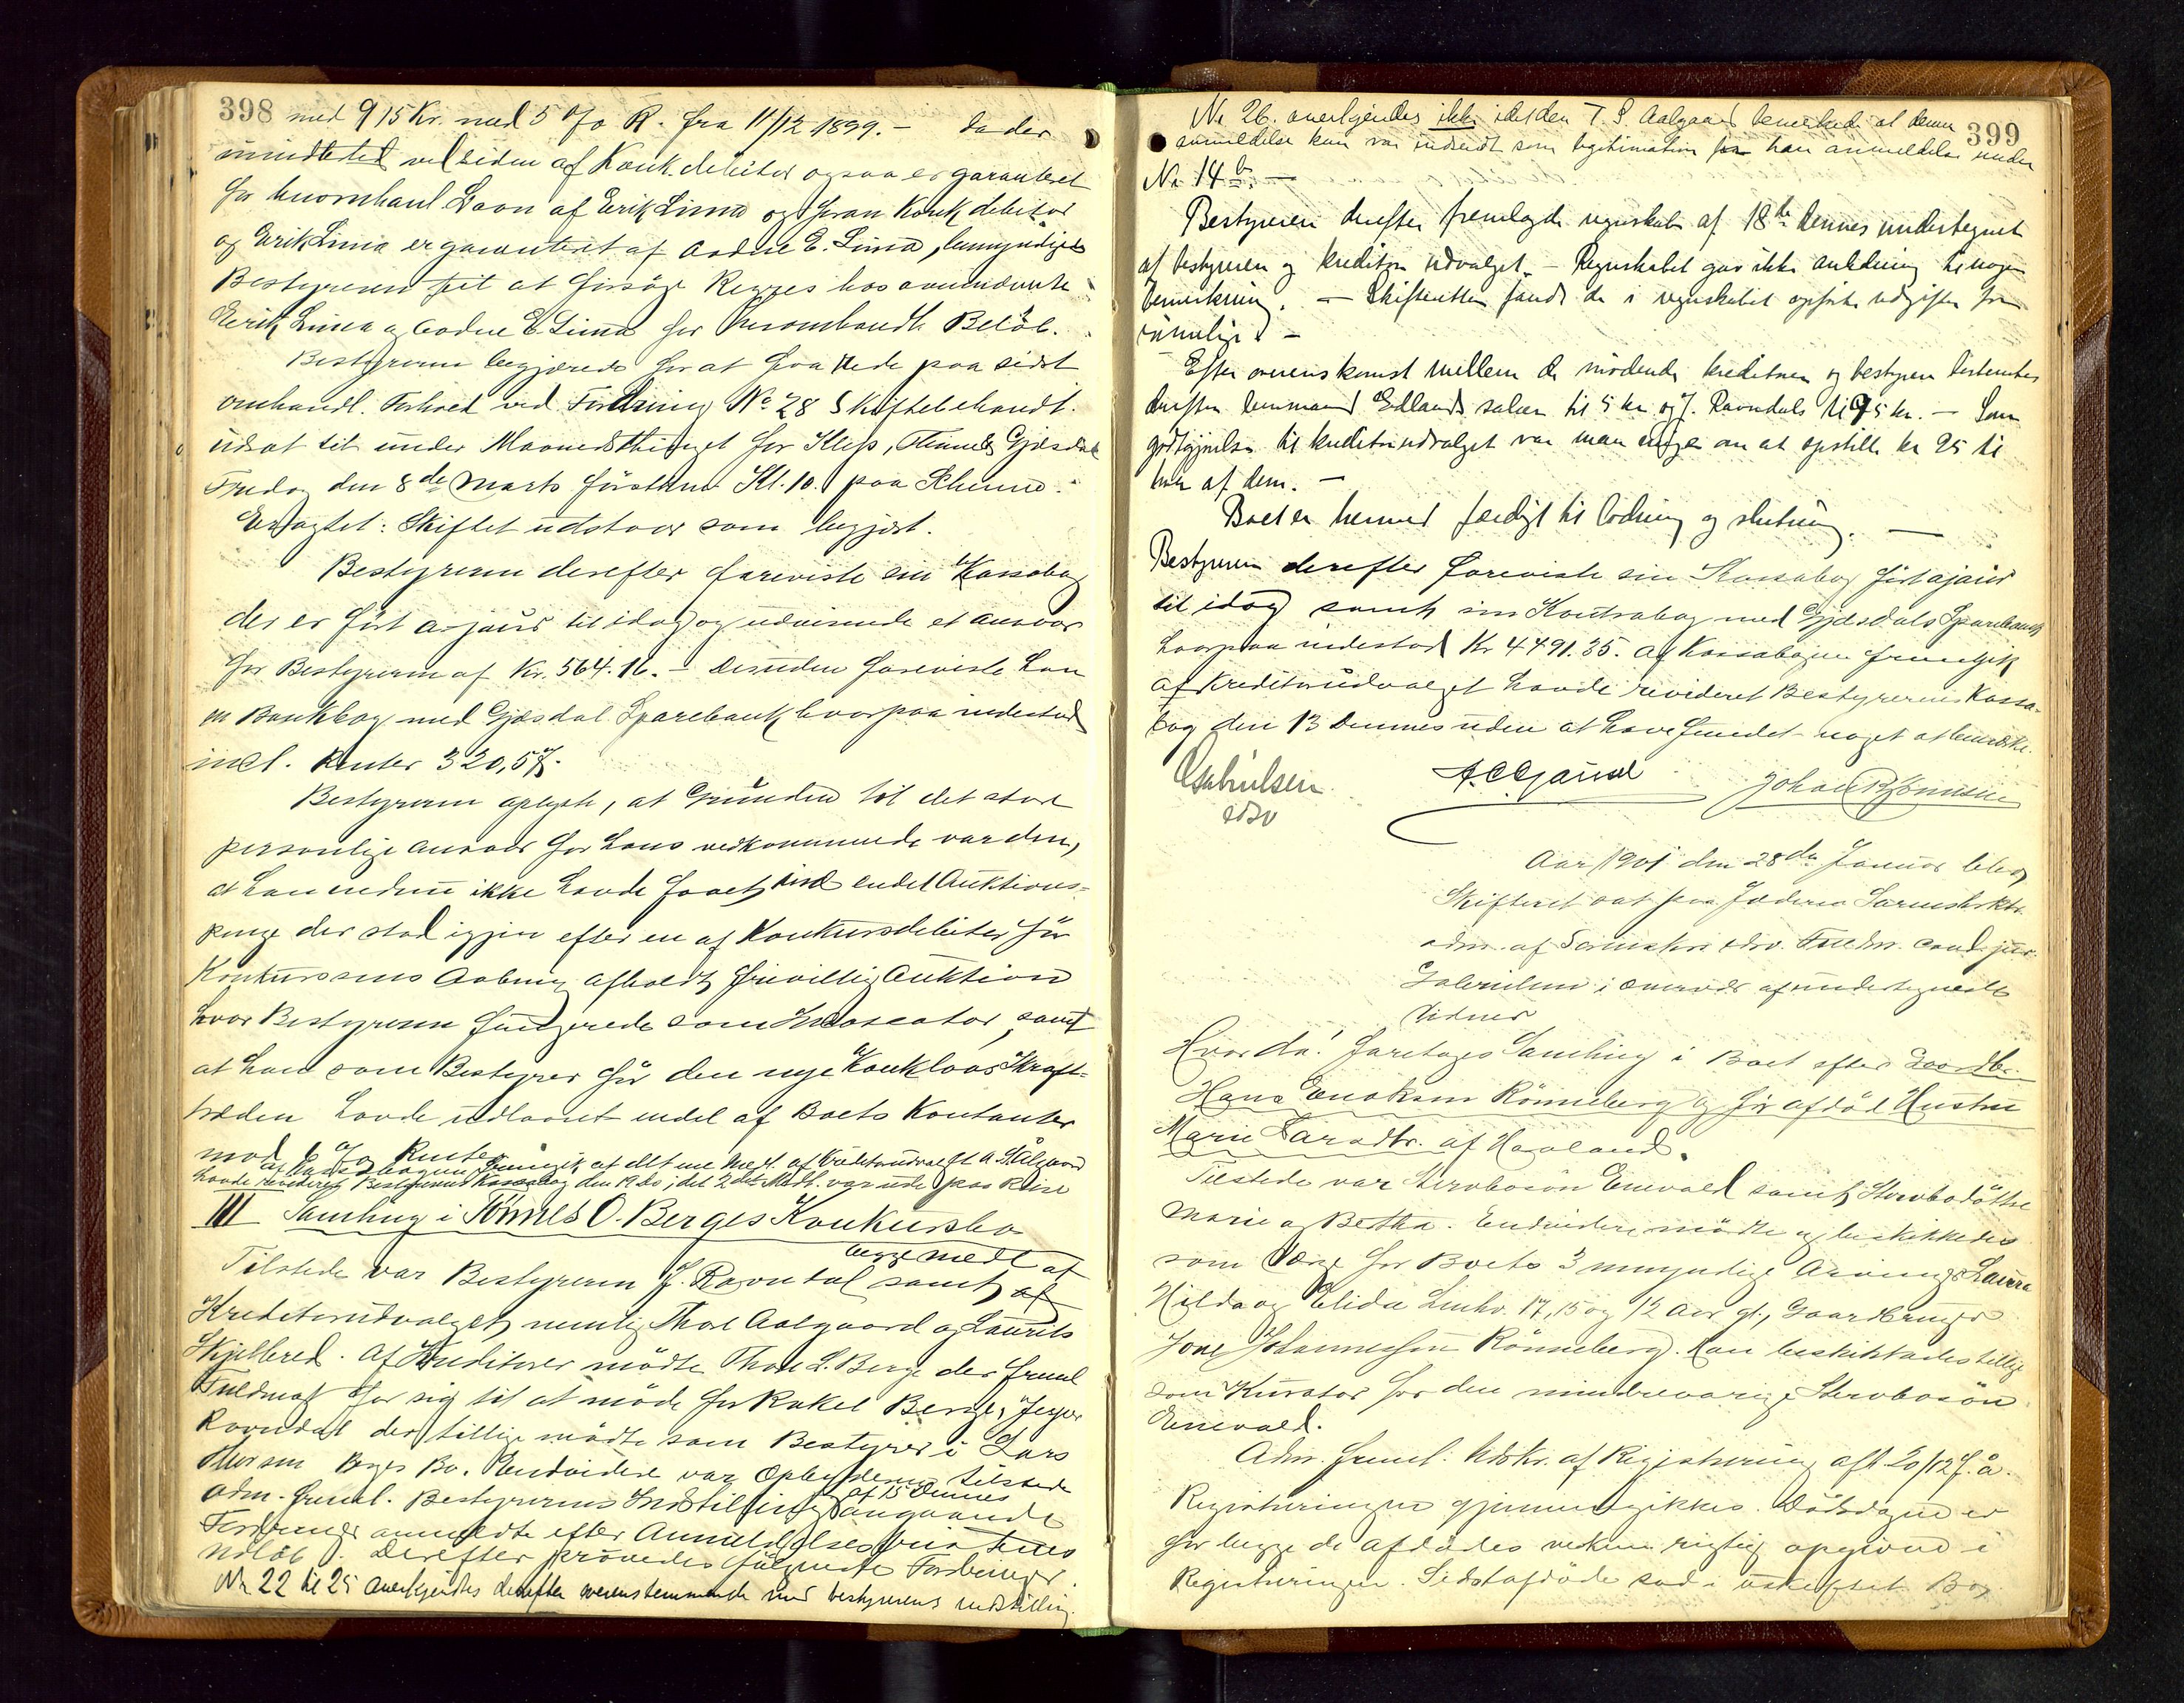 398
med 915 Kr. med 5 o/o R. fra 11/12 1899.- Da der
imidlertid ved Siden af Konk.debitor ogsaa er garanteret
for huomhanl. Laan af Erik Lima og foran Konk.debitor
og Erik Lima er garanteret af Aadne E. Lima, bemyndiges
Bestyreren til at forsöge Regres hos
Erik Lima og Aadne E. Lima for Beløb.
Bestyreren begjærede for at faa Rede paa sidst
omhandl. Forhold ved Fordring No 28 Skiftebehandl.
udsat til under Maanedsthinget for Klep, Thime & Gjesdal
Fredag den 8de Marts förstk. Kl. 10 paa Thime.
Eragtet: Skiftet udstaar som begjært.
Bestyreren derefter foreviste sin Kassabog
der er fört a-jour til idag og udvisende et Ansvar
for Bestyreren af Kr. 564.16.- Desuden foreviste han
en Bankbog med Gjesdal Sparebank hvorpaa indestod
incl. Renter 320,57.
Bestyreren oplyste, at Grunden til det store
personlige Ansvar for hans vedkommende var den,
at han endnu ikke havde faaet ind endel Auktions-
penge der stod igjen efter en af Konkursdebitor för
Konkursens Aabning afholdt frivillig Auktion
hvor Bestyreren fungerede som Inkassator, samt
at han som Bestyrer för den nye Konklovs Kraft-
træden havde udlaanet endel af Boets Kontanter
mod 6 o/o Renter
af Kassabogen fremgik at det ene Medl. af Kreditorudvalget A. Aalgaard
havde revideret Bestyrerens Kassabog den 19 ds, det 2det Medl. var ude paa Reise
III Samling i Tönnes O. Berges Konkursbo
begge medl. af
Tilstede var Bestyreren J. Ravndal samt af
Kreditorudvalget, nemlig Thore Aalgaard og Laurits
Skjelbred. Af Kreditorer mödte Thore L. Berge der freml.
Fuldmagt for sig til at möde for Rakel Berge, Jesper
Ravndal der tillige mödte som Bestyrer i Lars
Berges Bo. Endvidere var Opbyderen tilstede
af 15 Dennes
Adm. freml. Bestyrerens Indstilling angaaende
Fordringer anmeldte efter Anmeldelsesfristens
Udlöb. Derefter prövedes fölgende Fordringer.
Nr 22 til 25 anerkjendtes derefter overensstemmende med bestyrerens indstilling.
399
Nr 26. anerkjendes ikke idet den T. S. Aalgaard bemærkede at denne
anmeldelse kun var indsendt som legitimation for han anmeldelse under
Nr 14 b. —
Bestyreren derefter fremlagde regnskab af 18de dennes undertegnet
af bestyreren og kreditorudvalget. — Regnskabet gav ikke anledning til nogen
bemerkning. — Skifteretten fandt de i regnskabet opførte udgifter for
rimelige. —
Efter overenskomst mellem de mødende kreditorer og bestyrer bestemtes
derefter lensmand Edlands salær til 5 kr og J. Ravndals til 75 kr. — Som
godtgjørelse til kreditorudvalget var man enige om at opstille kr 25 til
hver af dem. —
Boet er hermed færdigt til lodning og slutning. —
Bestyreren derefter foreviste sin Kassabog fört ajour
til idag samt sin Kontrabog med Gjesdals Sparebank
hvorpaa indestod Kr 4491.35. Af Kassabogen fremgik
af Kreditorudvalget havde revideret Bestyrerens Kassa-
bog den 13 Dennes uden at have fundet noget at bemærke.
Gabrielsen
edv
A. C. Gausel
Johan Bjönnesen
Aar 1901 den 28de Januar blev
Skifteret sat paa Jæderen Sorenskrkt.
adm. af Sorenskr. edv. Fuldm. cand. jur.
Gabrielsen i Overvær af undertegnede
Vidner
Hvor da! foretoges Samling i Boet efter Gaardbr.
Hans Enoksen Rönneberg og för afdöd Hustru
Marie Larsdtr. af Haaland.
Tilstede var Stervbosön Enevald samt Stervbodöttre
Marie og Bertha. Endvidere mödte og beskikkedes
som Værge for Boets 3 umyndige Arvinger Laura
Hilda og Elida henhv. 17, 15 og 12 Aar gl., Gaardbruger
Jone Johannessen Rönneberg. Han beskikkedes tillige
som Kurator for den mindreaarige Stervbosön
Enevald.
Adm. freml. Udskr. af Registrering afh 20/12 f. å.
Registreringen gjennemgikkes. Dödsdagene er
for begge de afdödes vedkom. rigtig opgivne i
Registreringen. Sidstafdöde sad i uskiftet Bo.